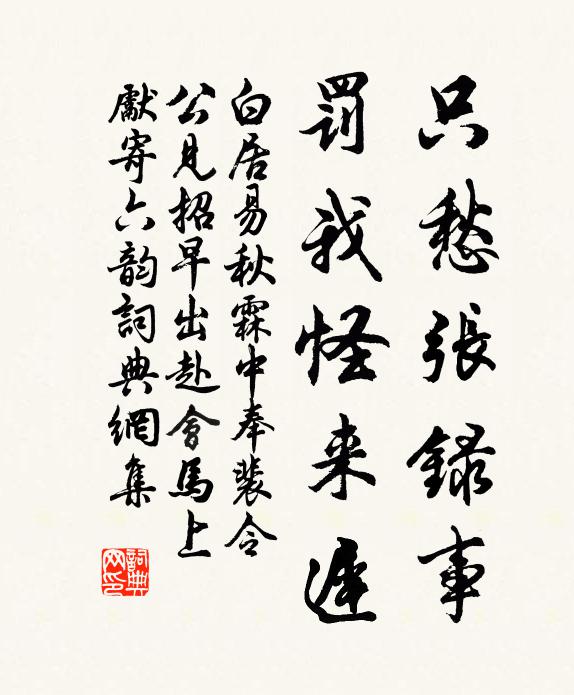 只愁張録事
罰我怪来遲
白居易秋霖中奉裴令
公見招早出赴會馬上
獻寄六韵詞典網集
詞典网印